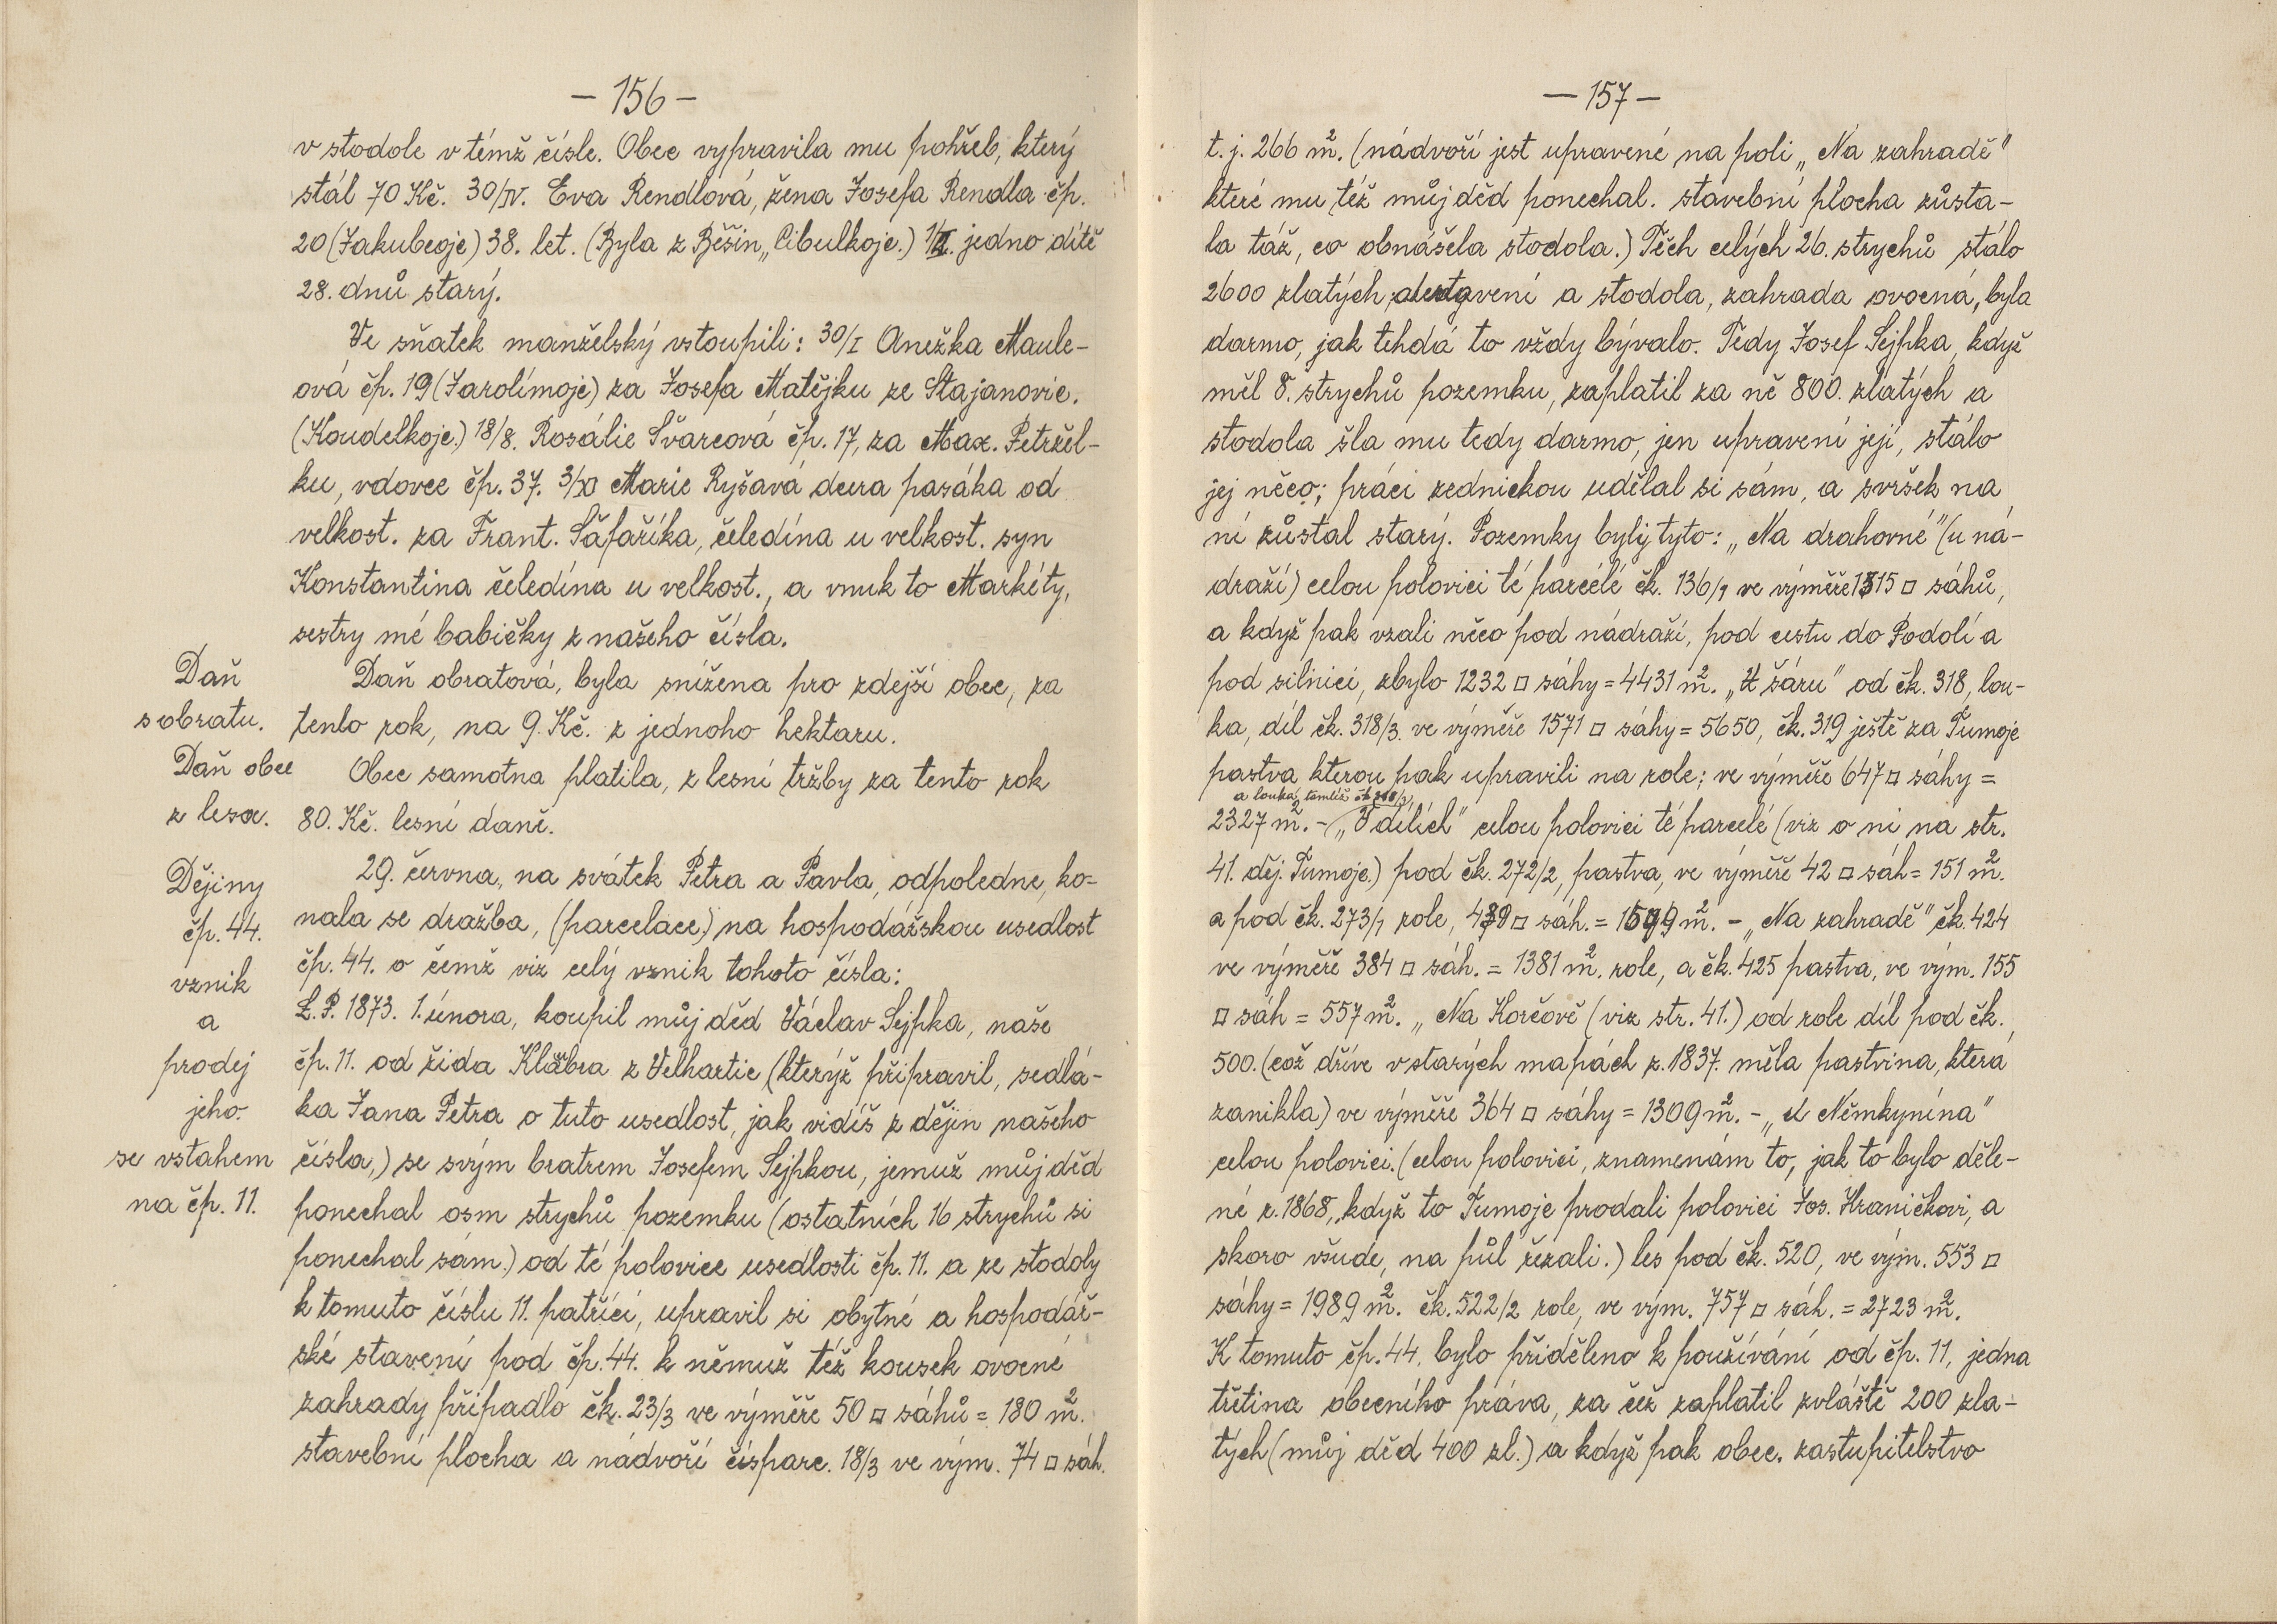 — 156 —
v stodole v témž čísle. Obec vypravila mu pohřeb, který
stál 70 Kč. 30/IV. Eva Rendlová, žena Josefa Rendla čp.
20 (Jakubcoje) 38. let. (Byla z Běšin „Cibulkoje.) jedno dítě
28. dnů starý.
Ve sňatek manželský vstoupili: 30/I Anežka Maule-
ová čp. 19 (Jarolímoje) za Josefa Matějku ze Stajanovic.
(Koudelkoje.) 18/8. Rosálie Švarcová čp. 17, za Max. Petržel-
ku, vdovec čp. 37. 3/XI Marie Ryšavá dcera pasáka od
velkost. za Frant. Šafaříka, čeledína u velkost. syn
Konstantina čeledína u velkost., a vnuk to Markéty,
sestry mé babičky z našeho čísla.
Daň
s obratu.
Daň obratová, byla snížena pro zdejší obec, za
tento rok, na 9. Kč. z jednoho hektaru.
Daň obce
z lesa.
Obec samotna platila, z lesní tržby za tento rok
80. Kč. lesní daně.
Dějiny
čp. 44.
vznik
a
prodej
jeho.
se vstahem
na čp. 11.
29. června, na svátek Petra a Pavla, odpoledne, ko-
nala se dražba, (parcelace) na hospodářskou usedlost
čp. 44. o čemž viz celý vznik tohoto čísla:
L.P. 1873. 1. února, koupil můj děd Václav Sejpka, naše
čp. 11. od žida Klábra z Velhartic (kterýž připravil, sedlá-
ka Jana Petra o tuto usedlost, jak vidíš z dějin našeho
čísla,) se svým bratrem Josefem Sejpkou, jemuž můj děd
ponechal osm strychů pozemku (ostatních 16 strychů si
ponechal sám.) od té polovice usedlosti čp. 11. a ze stodoly
k tomuto číslu 11. patřící, upravil si obytné a hospodář-
ské stavení pod čp. 44. k němuž též kousek ovocné
zahrady připadlo čk. 23/3 ve výměře 50 □ sáhů = 180 m².
stavební plocha a nádvoří číspare. 18/3 ve vým. 74 □ sáh.
— 157 —
t. j. 266 m². (nádvoří jest upravené na poli „Na zahradě"
které mu též můj děd ponechal. stavební plocha zůsta-
la táž, co obnášela stodola.) Těch celých 26. strychů stálo
2600 zlatých, a stavení a stodola, zahrada ovocná, byla
darmo, jak tehdá to vždy bývalo. Tedy Josef Sejpka, když
měl 8. strychů pozemku, zaplatil za ně 800. zlatých a
stodola šla mu tedy darmo, jen upravení její, stálo
jej něco; práci zednickou udělal si sám, a svršek na
ní zůstal starý. Pozemky byly tyto: „Na drahovné" (u ná-
draží) celou polovici té parcélé čk. 136/1 ve výměře 1315 □ sáhů,
a když pak vzali něco pod nádraží, pod cestu do Podolí a
pod silnici, zbylo 1232 □ sáhy = 4431 m². „U šáru" od čk. 318, lou-
ka, díl čk. 318/3. ve výměře 1571 □ sáhy = 5650, čk. 319 ještě za Tumoje
pastva kterou pak upravili na role; ve výměře 647 □ sáhy =
a louka, tamtéž čk
2327 m². – „V dílích" celou polovici té parcelé (viz o ní na str.
41. děj. Tumoje.) pod čk. 272/2, pastva, ve výměře 42 □ sáh = 151 m².
a pod čk. 273/1 role, □ sáh. = m². – „Na zahradě" čk. 424
ve výměře 384 □ sáh. = 1381 m². role, a čk. 425 pastva, ve vým. 155
□ sáh = 557 m². „Na Korčově (viz str. 41.) od role díl pod čk.
500. (což dříve v starých mapách z. 1837. měla pastvina, která
zanikla) ve výměře 364 □ sáhy = 1309 m². – „U Němkynína"
celou polovici. (celou polovici, znamenám to, jak to bylo děle-
né r. 1868, když to Tumoje prodali polovici Jos. Hraničkovi, a
skoro všude, na půl řezali.) les pod čk. 520, ve vým. 553 □
sáhy = 1989 m². čk. 522/2 role, ve vým. 757 □ sáh. = 2723 m².
K tomuto čp. 44. bylo přiděleno k používání od čp. 11, jedna
třetina obecního práva, za čež zaplatil zvláště 200 zla-
tých (můj děd 400 zl.) a když pak obec. zastupitelstvo